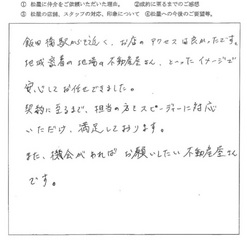 ① 松屋に仲介をご依頼いただいた理由。 ②成約に至るまでのご感想
③ 松屋の店舗、スタッフの対応、印象について ④松屋への今後のご要望等。
飯田橋駅から近く、お店のアクセスは良かったです。
地域密着の地場の不動産屋さん、といったイメージで
安心してお任せできました。
契約に至るまで、担当の方もスピーディーに対応
いただけ、満足しております。
また、機会があれば お願いしたい不動産屋さん
です。